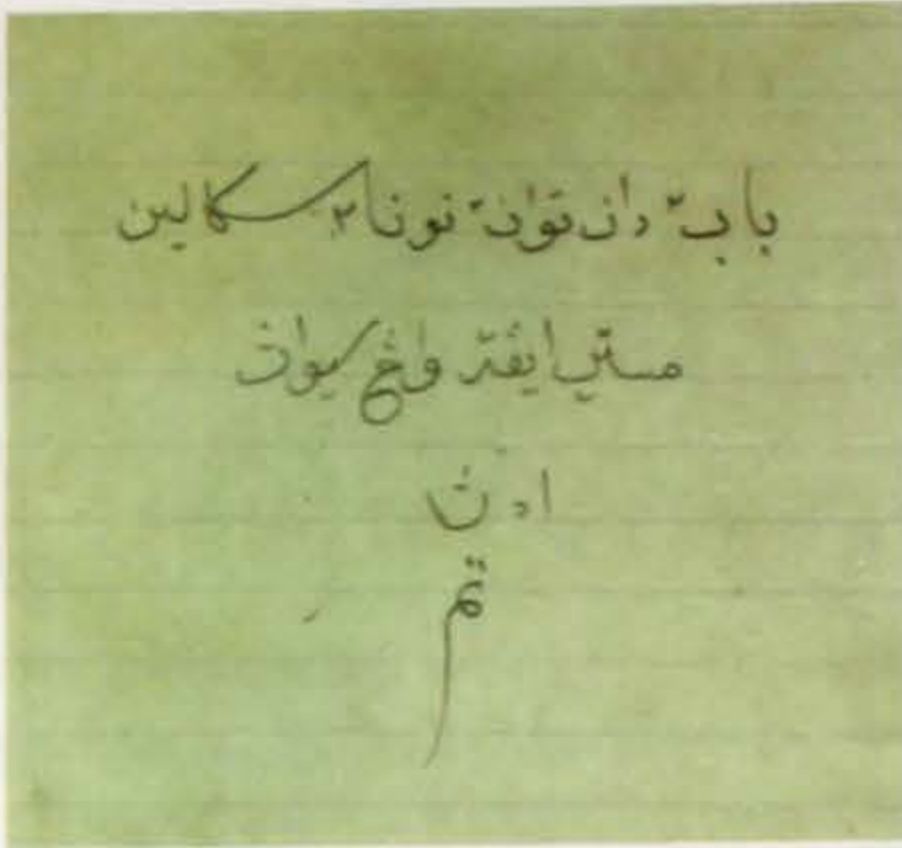 باب٢ دان توان٢ نونا٢ سكالين
مستي ايڠت واڠ سيوان
ادڽ
تم